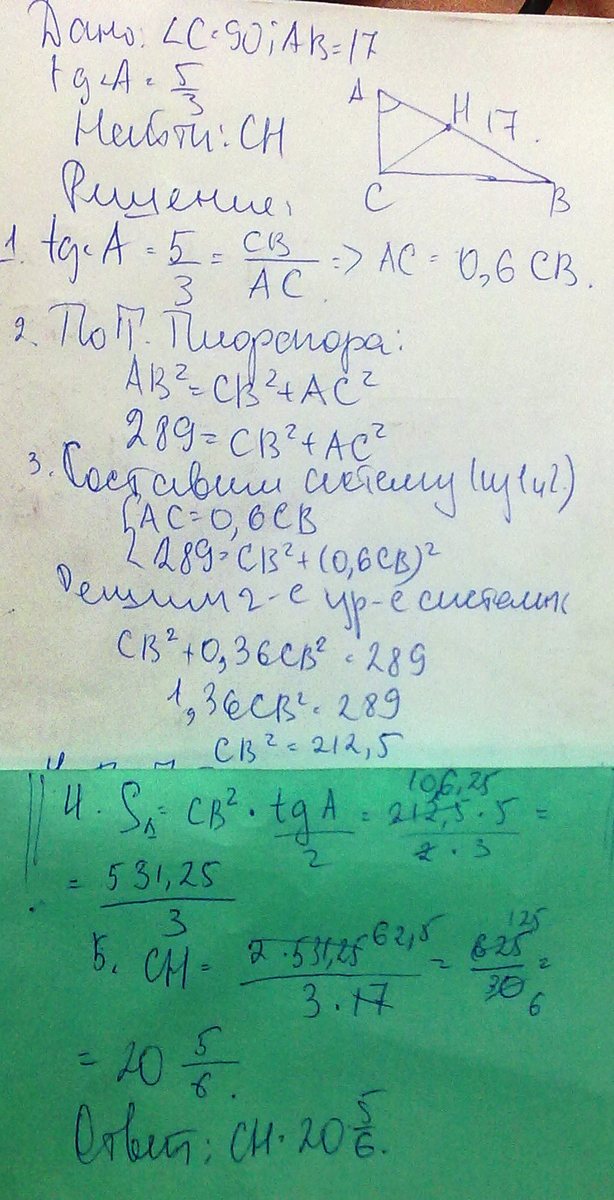 Дано: ∠C=90; AB=17
tg∠A = 5/3
Найти: CH
A
H 17.
C
B
Решение:
1. tg∠A = 5/3 = CB/AC => AC = 0,6 CB.
2. По т. Пифагора:
AB² = CB² + AC²
289 = CB² + AC²
3. Составим систему (из 1 и 2.)
{ AC = 0,6CB
289 = CB² + (0,6CB)²
Решим 2-е ур-е системы
CB² + 0,36CB² = 289
1,36CB² = 289
CB² = 212,5
4. S△ = CB² · tg A/2 = 106,25 212,5 · 5/2 · 3 =
= 531,25/3
5. CH = 2 · 531,25 62,5/3 · 17 = 625 125/30 6 =
= 20 5/6.
Ответ: CH = 20 5/6.